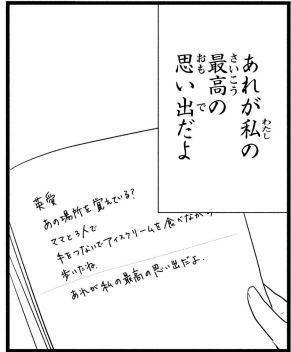 あれが私の
最高の
思い出だよ
英愛
あの場所を覚えている?
ママと3人で
手をつないでアイスクリームを食べながら
歩いたね。
あれが私の最高の思い出だよ.